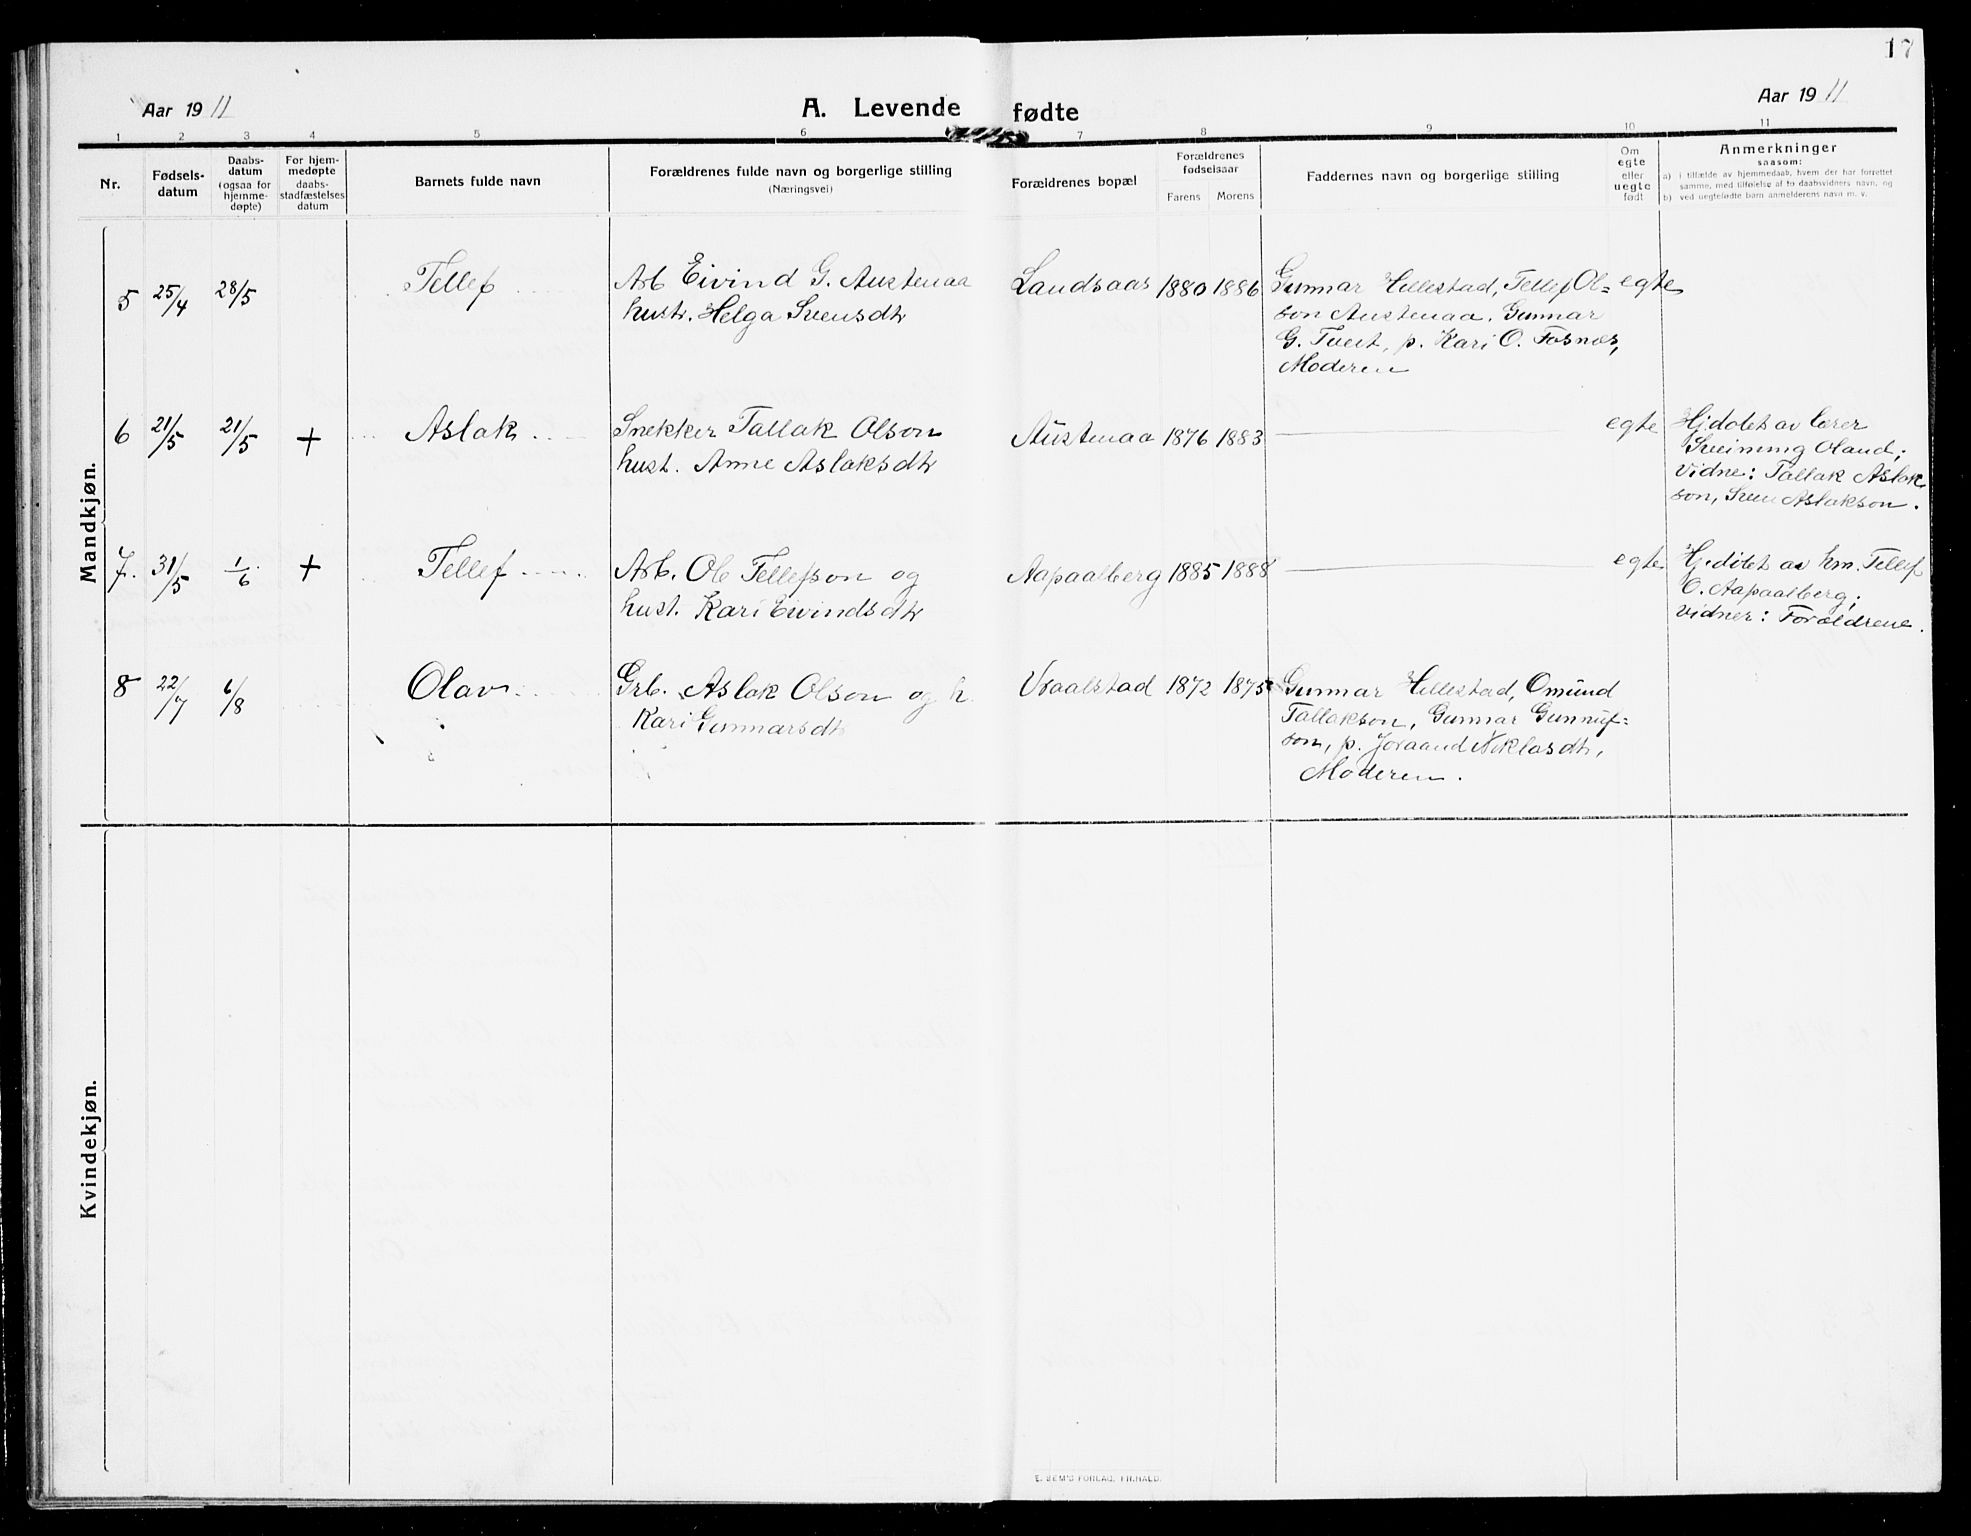 17
Aar 1911
A. Levende fødte
Aar 1911
1 2 3 4 5 6 7 8 9 10 11
Nr.
Fødsels-
datum
Daabs-
datum
(ogsaa for
hjemme-
døpte)
For hjem-
medøpte
daabs-
stadfæstelses
datum
Barnets fulde navn
Forældrenes fulde navn og borgerlige stilling
(Næringsvei)
Forældrenes bopæl
Forældrenes
fødselsaar
Farens Morens
Faddernes navn og borgerlige stilling
Om
egte
eller
uegte
født
Anmerkninger
saasom:
a) i tilfælde av hjemmedaab, hvem der har forrettet
samme, med tilføielse af to daabsvidners navn, og
b) ved uegtefødte barn anmelderens navn m. v.
Mandkjøn.
5 25/4 28/5 Tellef Arb Eivind G. Austenaa Landsaas 1880 1886 Gunnar Hillestad, Tellef Ol= egte
hust. Helga Svensdtr son Austenaa, Gunnar
G. Tveit, p. Kari O. Fosnes,
Moderen
6 21/5 21/5 + Aslak Snekker Tallak Olson Austenaa 1876 1883 egte Hj.døbt av lærer
hust. Anne Aslaksdtr Sveinung Oland;
vidne: Tallak Aslak
son, Sven Aslakson.
7. 31/5 1/6 + Tellef Arb. Ole Tellefson og Aapaalberg 1885 1888 egte Hj.døbt av hm. Tellef
hust. Kari Eivindsdtr O. Aapaalberg;
vidner: Forældrene.
8 22/7 6/8 Olav Grb. Aslak Olson og h. Vraalstad 1872 1875 Gunnar Hillestad, Omund
Kari Gunnarsdtr Tallakson, Gunnar Gunnuf=
son, p. Joraand Niklasdtr,
Moderen.
Kvindekjøn.
E. SEM'S FORLAG, FR.HALD.